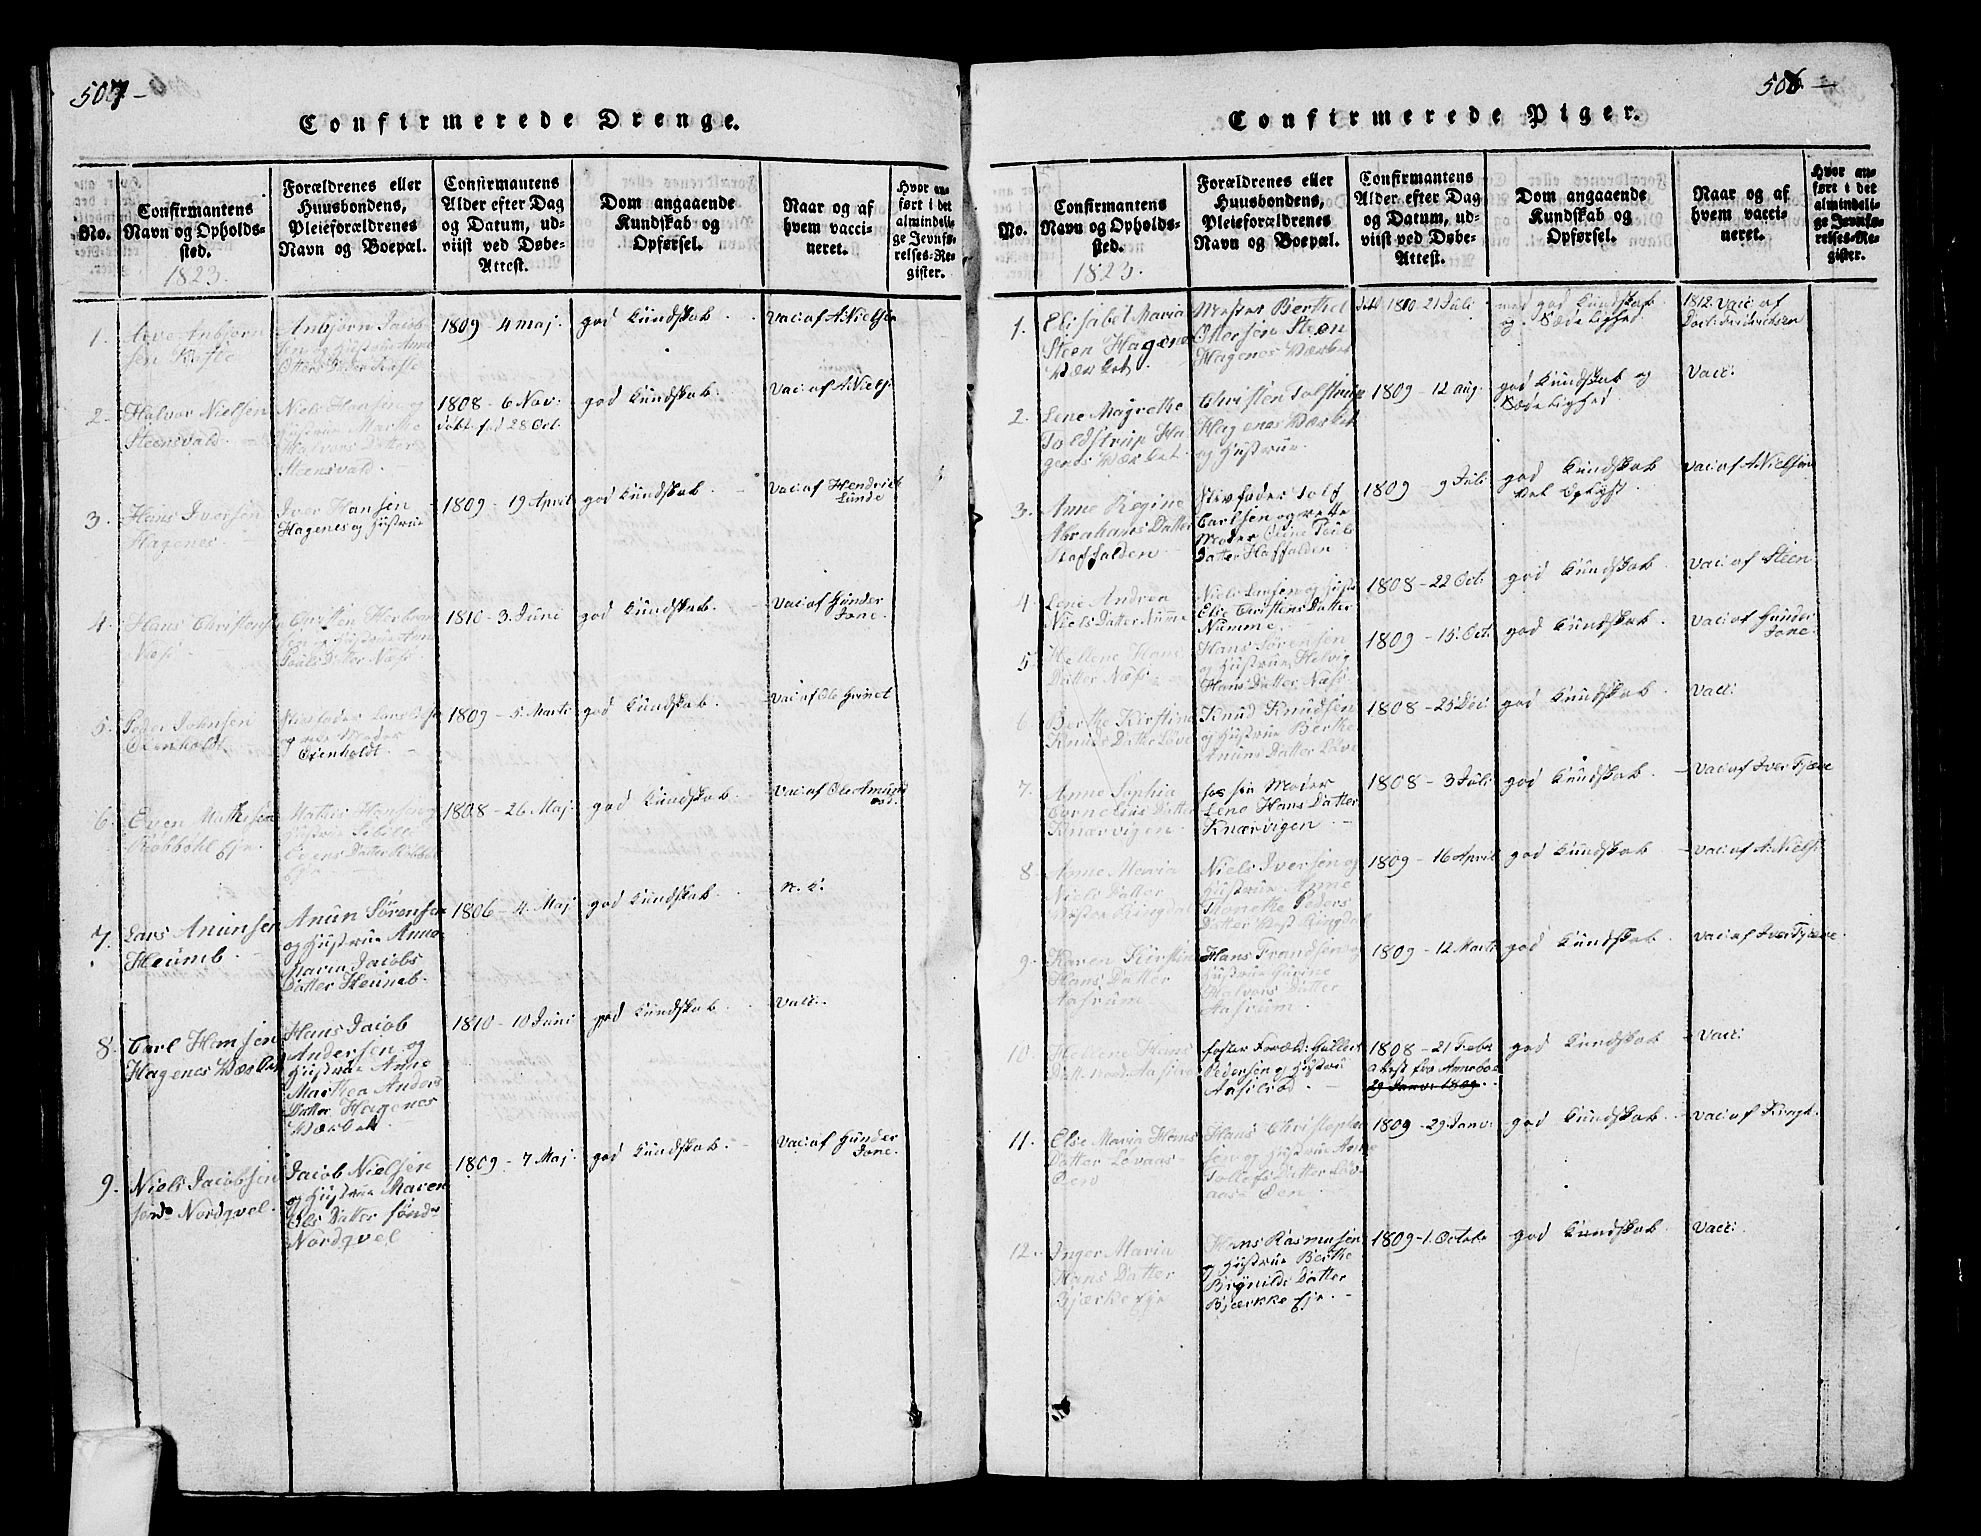 507 –
Confirmerede Drenge.
No.
Confirmantens
Navn og Opholds-
sted.
1823.
Forældrenes eller
Huusbondens,
Pleieforældrenes
Navn og Boepæl.
Confirmantens
Alder efter Dag
og Datum, ud-
viist ved Døbe-
Attest.
Dom angaaende
Kundskab og
Opførsel.
Naar og af
hvem vacci-
neret.
Hvor an-
ført i det
almindeli-
ge Jevnfø-
relses-Re-
gister.
1.
Anbjørn
1809 - 4 Maj.
god Kundskab.
Vac: af A. Nielsen
2.
Halvor Nielsen
Steensvald.
Niels Hansen og
Hustrue Marthe
Halvors Datter
Steensvald.
1808 - 6 Nov:
døbt fød 28 Oct.
god Kundskab.
Vac: af A. Niels:
3.
Hans Iversen
Hagenes
Iver Hansen
Hagenes og Hustrue
1809 - 19 April
god Kundskab.
Vac: af Hendrich
Lunde
4.
Hans Christensen
Næss
Christen
Pouls Datter Næss
1810 - 3. Juni
god Kundskab.
Vac: af Gunder
Jone.
5.
Peder Johnsen
Oxenholdt
Stivfader
og Moder
Oxenholdt.
1809 - 5 Marti
god Kundskab.
Vac: af Ole
6.
Even Mathisen
Robbohl Eje.
Mathis Hansen og
Hustrue
1808 - 26 Maj.
god Kundskab.
Vac: af Ole Amund
7.
Lars Anunsen
Heumb.
Anun Sørensen
og Hustrue Anne
Maria Jacobs
Datter Heumb.
1806 - 4. Maj
god Kundskab.
n. k:
8.
Carl Hansen
Hagenes Værket
Hans Jacob
Andersen og
Hustrue Anne
Marthea Anders
Datter Hagenes
Værket
1810 - 10 Juni
god Kundskab.
Vacc:
9.
Niels Jacobsen
søndr Nordqvel.
Jacob Nielsen
og Hustrue Maren
Ols Datter sønd
Nordqvel
1809 - 7 Maj.
god Kundskab.
Vac: af Gunder
Jone.
506 –
Confirmerede Piger.
No.
Confirmantens
Navn og Opholds-
sted.
1823.
Forældrenes eller
Huusbondens,
Pleieforældrenes
Navn og Boepæl.
Confirmantens
Alder efter Dag
og Datum, ud-
viist ved Døbe-
Attest.
Dom angaaende
Kundskab og
Opførsel.
Naar og af
hvem vacci-
neret.
Hvor an-
ført i det
almindeli-
ge Jevnfø-
relses-Re-
gister.
1.
Elisabet Maria
Steen Hagenes
Værket.
Mester Berthel
Ottersen Steen
Hagenes Værket
1810 - 21 Juli
med god Kundskab
og Sædelighed
1812. Vacc: af
Doct: Fridrichsen
2.
Lene Magrethe
Toldstrup Ha-
genes Værket.
Christen Tolstrup
Hagenes Værket
og Hustrue.
1809 - 12 Aug.
god Kundskab og
Sædelighed
Vacc:
3.
Anne Regine
Abrahams Datter
Haffalden
Stivfader Tolf
Carlsen og rette
Moder Oline Pouls
Datter Haffalden
1809 - 9 Juli
god Kundskab
Vel Oplyst.
Vac: af A. Nielsen
4.
Lene Andrea
Niels Datter Numme
Niels Larsen og Hust:
Else Christens Datter
Numme.
1808 - 22 Oct:
god Kundskab.
Vac: af Steen
5.
Hellene Hans
Datter Næss.
Hans Sørensen
og Hustrue Helvig
Hans Datter Næss.
1809 - 15. Oct.
god Kundskab.
Vac: af Gunder
Jone.
6.
Berthe Kirstine
Knuds Datter Løve
Knud Knudsen
og Hustrue Berthe
Anuns Datter Løve
1808 - 23 Dec:
god Kundskab.
Vacc:
7.
Anne Sophia
Cornelius Datter
Knærvigen.
hos sin Moder
Lene Hans Datter
Knærvigen.
1808 - 3 Juli
god Kundskab.
Vac: af Iver Fjære
8.
Anne Maria
Niels Datter
Vestre Ringdal
Niels Iversen og
Hustrue Anne
Thonette Peders
Datter Vest Ringdal
1809 - 16 April
god Kundskab
Vac: af A. Niels:
9.
Karen Kirstine
Hans Datter
Aasrum.
Hans Frandsen og
Hustrue Gurine
Halvors Datter
Aasrum.
1809 - 12. Marti
god Kundskab.
Vac: af Iver Fjære.
10.
Hellene Hans
Datt.
foster Foræld: Gullert
Pedersen og Hustru
Aasilrød.
1808 - 21 Febr
29 Janv: 1809.
god Kundskab.
Vacc:
11.
Else Maria Hans
Datter Løvaas-
Øen
Hans Christopher
sen og Hustrue Anne
Tollefs Datter Løv-
aas-Øen.
1809 - 29 Janv:
god Kundskab.
Vac: af
12.
Inger Maria
Hans Datter
Bjærke Eje
Hans Rasmusen
og Hustrue Berthe
Brynilds Datter
Bjærkke Eje.
1809 - 1. Octobr
god Kundskab.
Vacc: